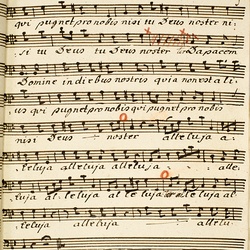 qui pugnet pro nobis nisi tu Deus noster ni:
si tu Deus tu Deus noster Da pacem
Domine in diebus nostris quia non est ali:
us qui pugnet pro nobis qui pugnet pro nobis
nisi Deus noster alleluja a:
leluja alleluja alleluja alle:
luja al: leluja al le luja alleluja al le:
leluja alleluja allelu: